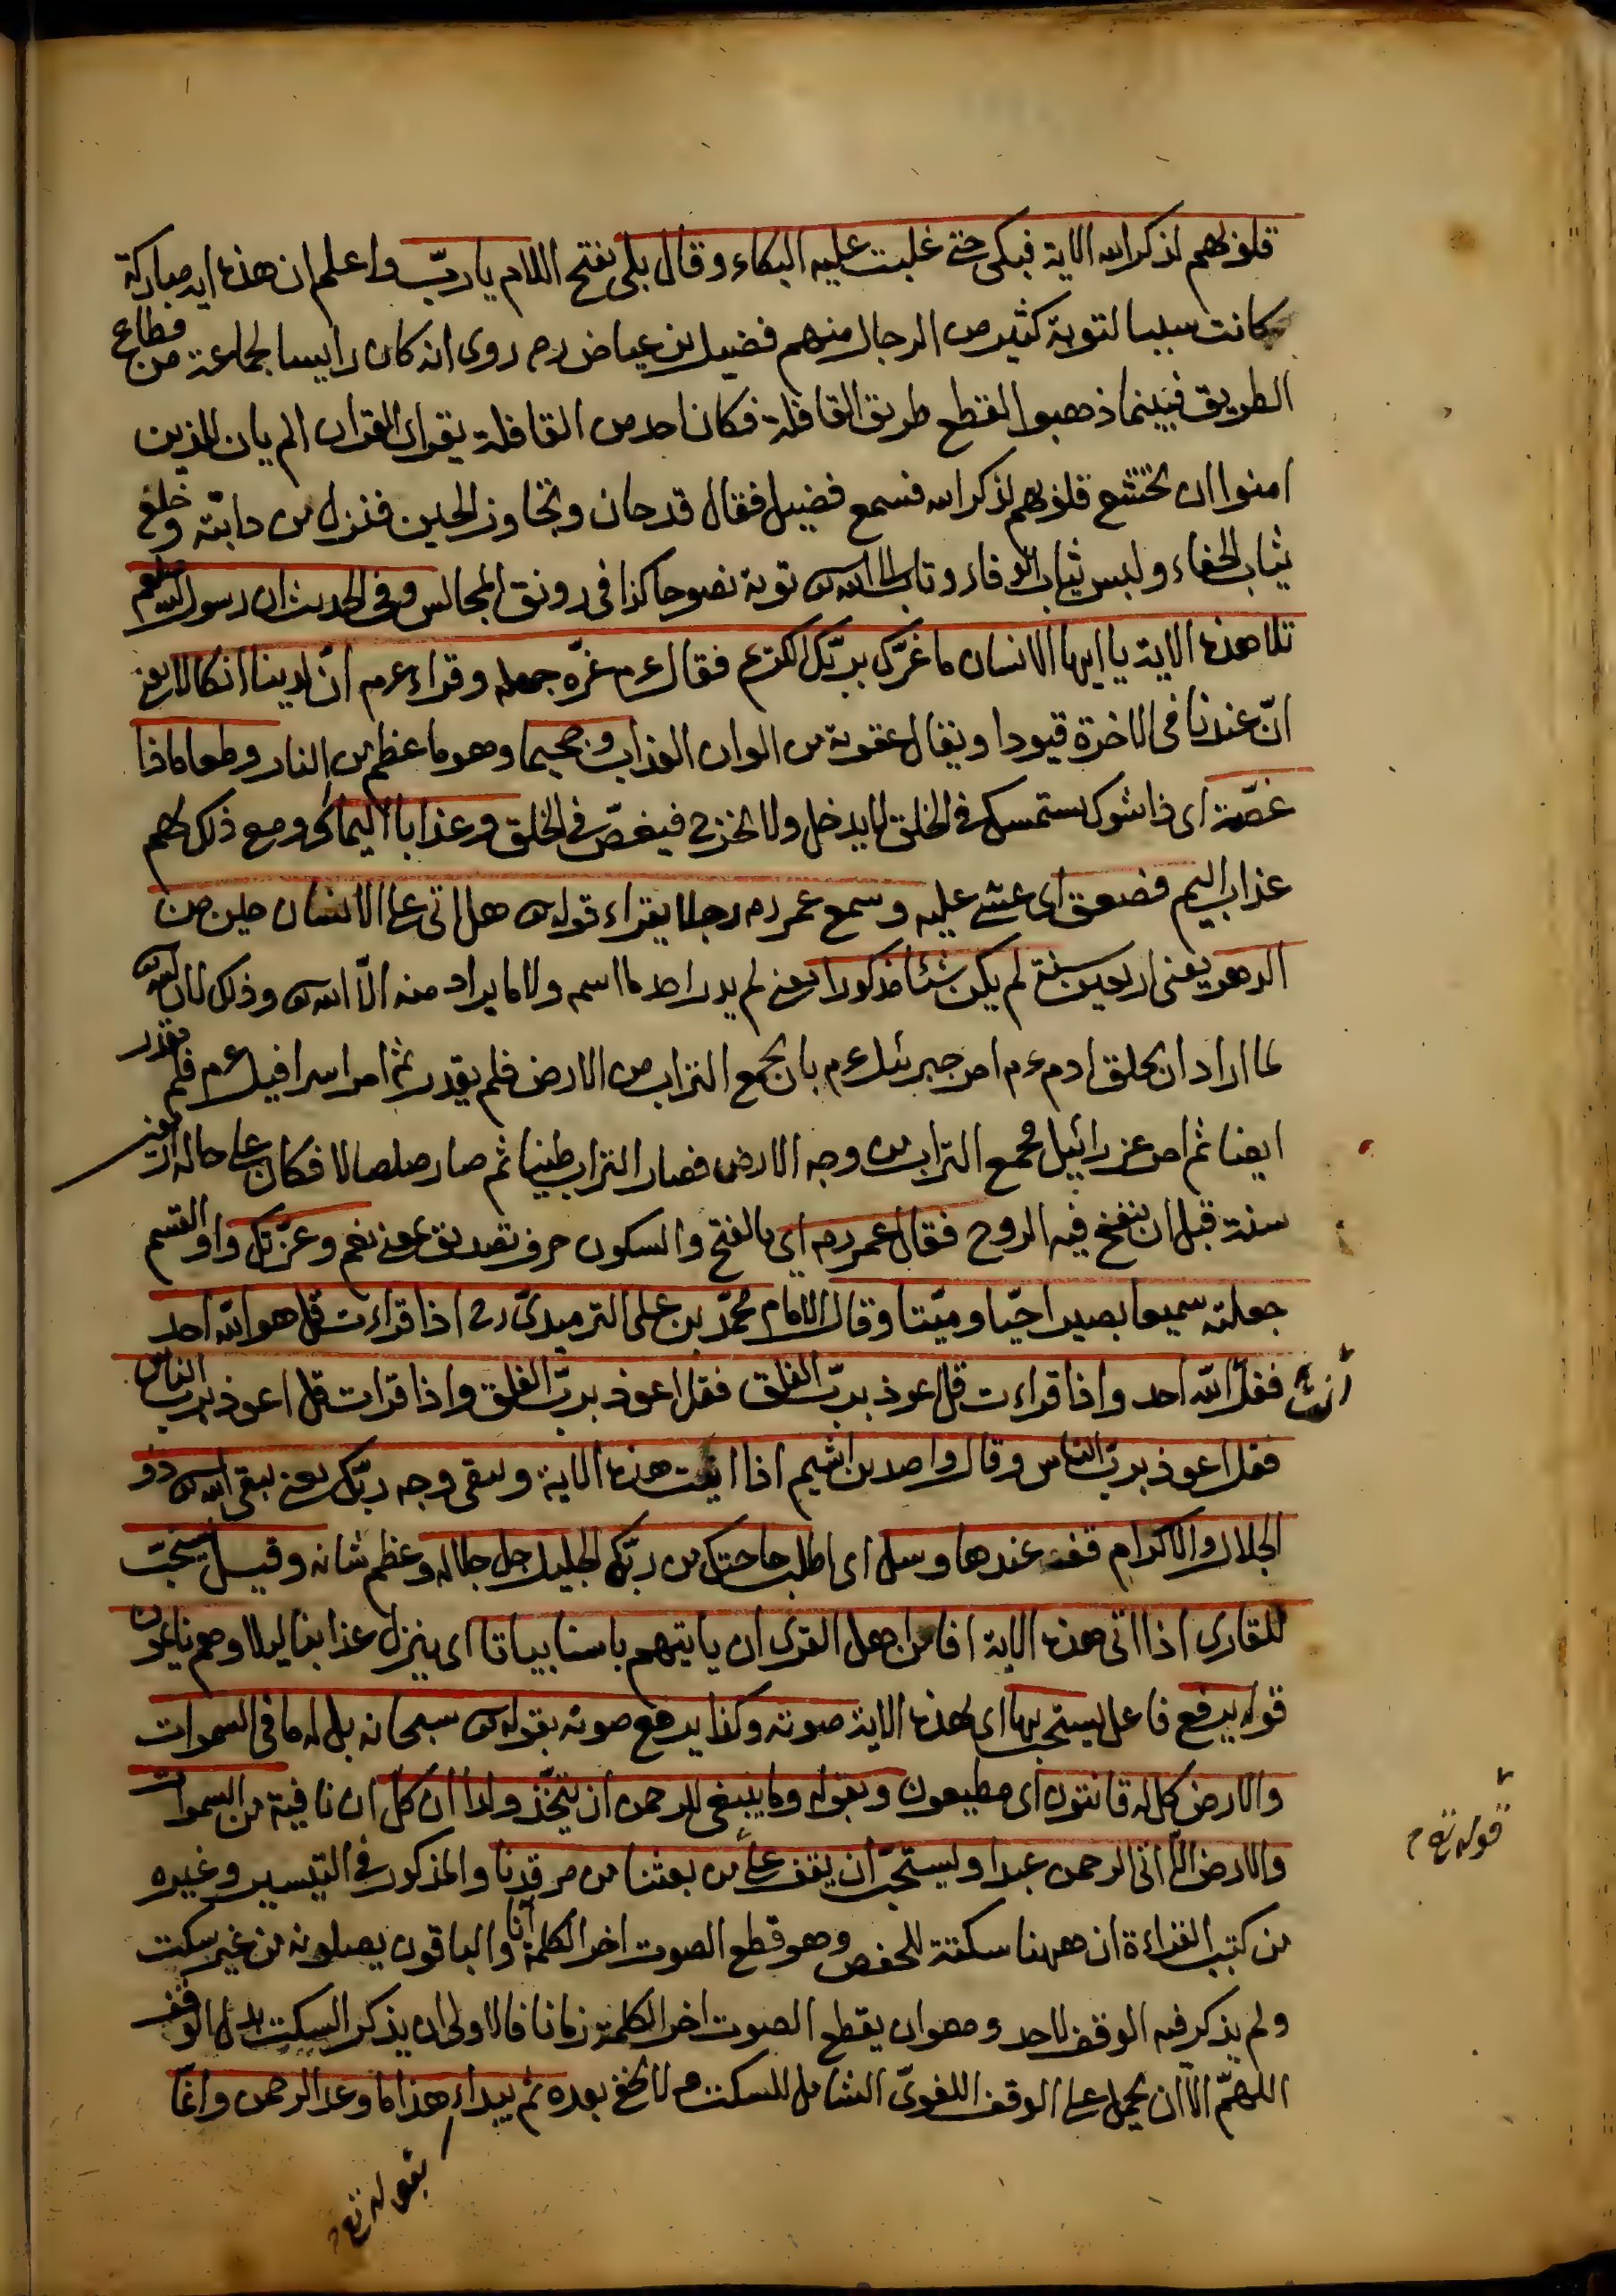 قلوبهم لذكر الله الاية فبكى حتى غلبت عليه البكاء وقال بلى بفتح اللام يا ربّ واعلم ان هذه اية مباركة
كانت سببا لتوبة كثير من الرجال منهم فضيل بن عياض رح روى انه كان رايسا لجماعة من قطاع
الطريق فبينما ذهبوا لقطع طريق القافلة فكان احد من القافلة يقراء القران الم يان للذين
امنوا ان تخشع قلوبهم لذكر الله فسمع فضيل فقال قد حان وتجاوز الحين فنزل من دابته وخلع
ثياب الجفاء ولبس ثياب الوفاء وتاب الى الله تع توبة نصوحا كذا فى رونق المجالس وفى الحديث ان رسول الله صلعم
تلا هذه الاية يا ايها الانسان ما غرّك بربّك الكريم فقال عم غرّه جهله وقراء عم انّ لدينا انكالا يعنى
انّ عندنا فى الاخرة قيودا ويقال عقوبة من الوان العذاب وجحيما وهو ما عظم من النار وطعاما ذا
غصّة اى ذا شوك يستمسك فى الحلق لا يدخل ولا يخرج فيغصّ فى الحلق وعذابا اليما اى ومع ذلك لهم
عذاب اليم فصعق اى غشى عليه وسمع عمر رح رجلا يقراء قوله تع هل اتى على الانسان حين من
الدهر يعنى اربعين سنة لم يكن شيئا مذكورا يعنى لم يدر احد ما اسمه ولا ما يراد منه الّا الله تع وذلك لان الله تع
لما اراد ان يخلق ادم عم امر جبرئيل عم بان يجمع التراب من الارض فلم يقدر ثم امر اسرافيل عم فلم يقدر
ايضا ثم امر عزرائيل فجمع التراب من وجه الارض فصار التراب طينا ثم صار صلصالا فكان على حاله اربعين
سنة قبل ان ينفخ فيه الروح فقال عمر رح اى بالفتح والسكون حرف تصديق يعنى نعم وعزّتك واو القسم
جعلته سميعا بصيرا حيّا وميّتا وقال الامام محمّد بن على الترميدىّ رح اذا قراءت قل هو الله احد
فقل الله احد واذا قراءت قل اعوذ بربّ الفلق فقل اعوذ بربّ الفلق واذا قرات قل اعوذ بربّ الناس
فقل اعوذ بربّ الناس وقال واصد بن اشيم اذا اتيت هذه الاية ويبقى وجه ربّك يعنى يبقى الله تع ذو
الجلال والاكرام قفه عندها وسل اى اطلب حاجتك من ربّك الجليل جل جلاله وعظم شانه وقيل يستحبّ
للقارى اذا اتى هذه الاية افامن اهل القرى ان ياتيهم باسنا بياتا اى ينزل عذابنا ليلا وهم نايمون
قوله يرفع فاعل يستحبّ بها اى بهذه الاية صوته وكذا يرفع صوته بقوله تع سبحانه بل له ما فى السموات
والارض كل له قانتون اى مطيعون وبقوله وما ينبغى للرحمن ان يتّخذ ولدا ان كل ان نافية من السموات
والارض الّا اتى الرحمن عبدا ويستحبّ ان يقف على من بعثنا من مرقدنا والمذكور فى التيسير وغيره
قوله تع
من كتب القراءة ان ههنا سكتة للحفص وهو قطع الصوت اخر الكلمة آنا والباقون يصلونه من غير سكت
ولم يذكر فيه الوقف لاحد وهو ان يقطع الصوت اخر الكلمة زمانا فالاولى ان يذكر السكت بدل الوقف
اللهمّ الّا ان يحمل على الوقف اللغوىّ الشامل للسكت ولا يخفى بعده ثم يبداء هذا ما وعد الرحمن وانّما
بقوله تع